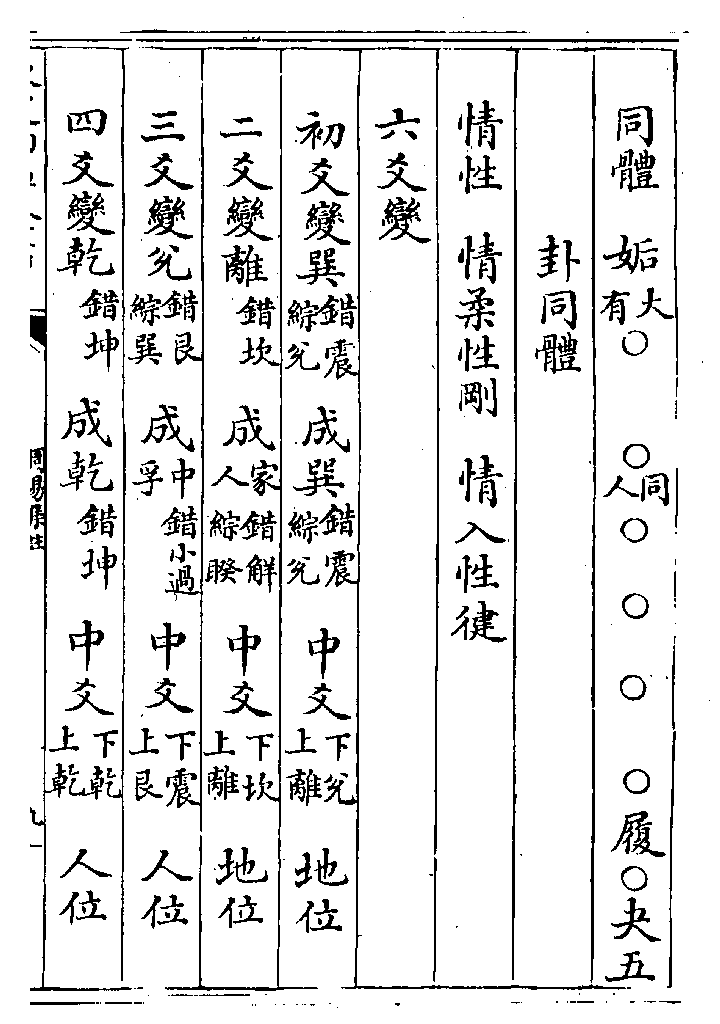 同體　姤大有○　○同人○　○　○　○履○夬五
卦同體
情性　情柔性剛　情入性健
六爻變
初爻變巽錯震綜兌　成巽錯震綜兌　中爻下兌上離　地位
二爻變離錯坎　成家人錯解綜睽　中爻下坎上離　地位
三爻變兌錯艮綜巽　成中孚錯小過　中爻下震上艮　人位
四爻變乾錯坤　成乾錯坤　中爻下乾上乾　人位
周易集註